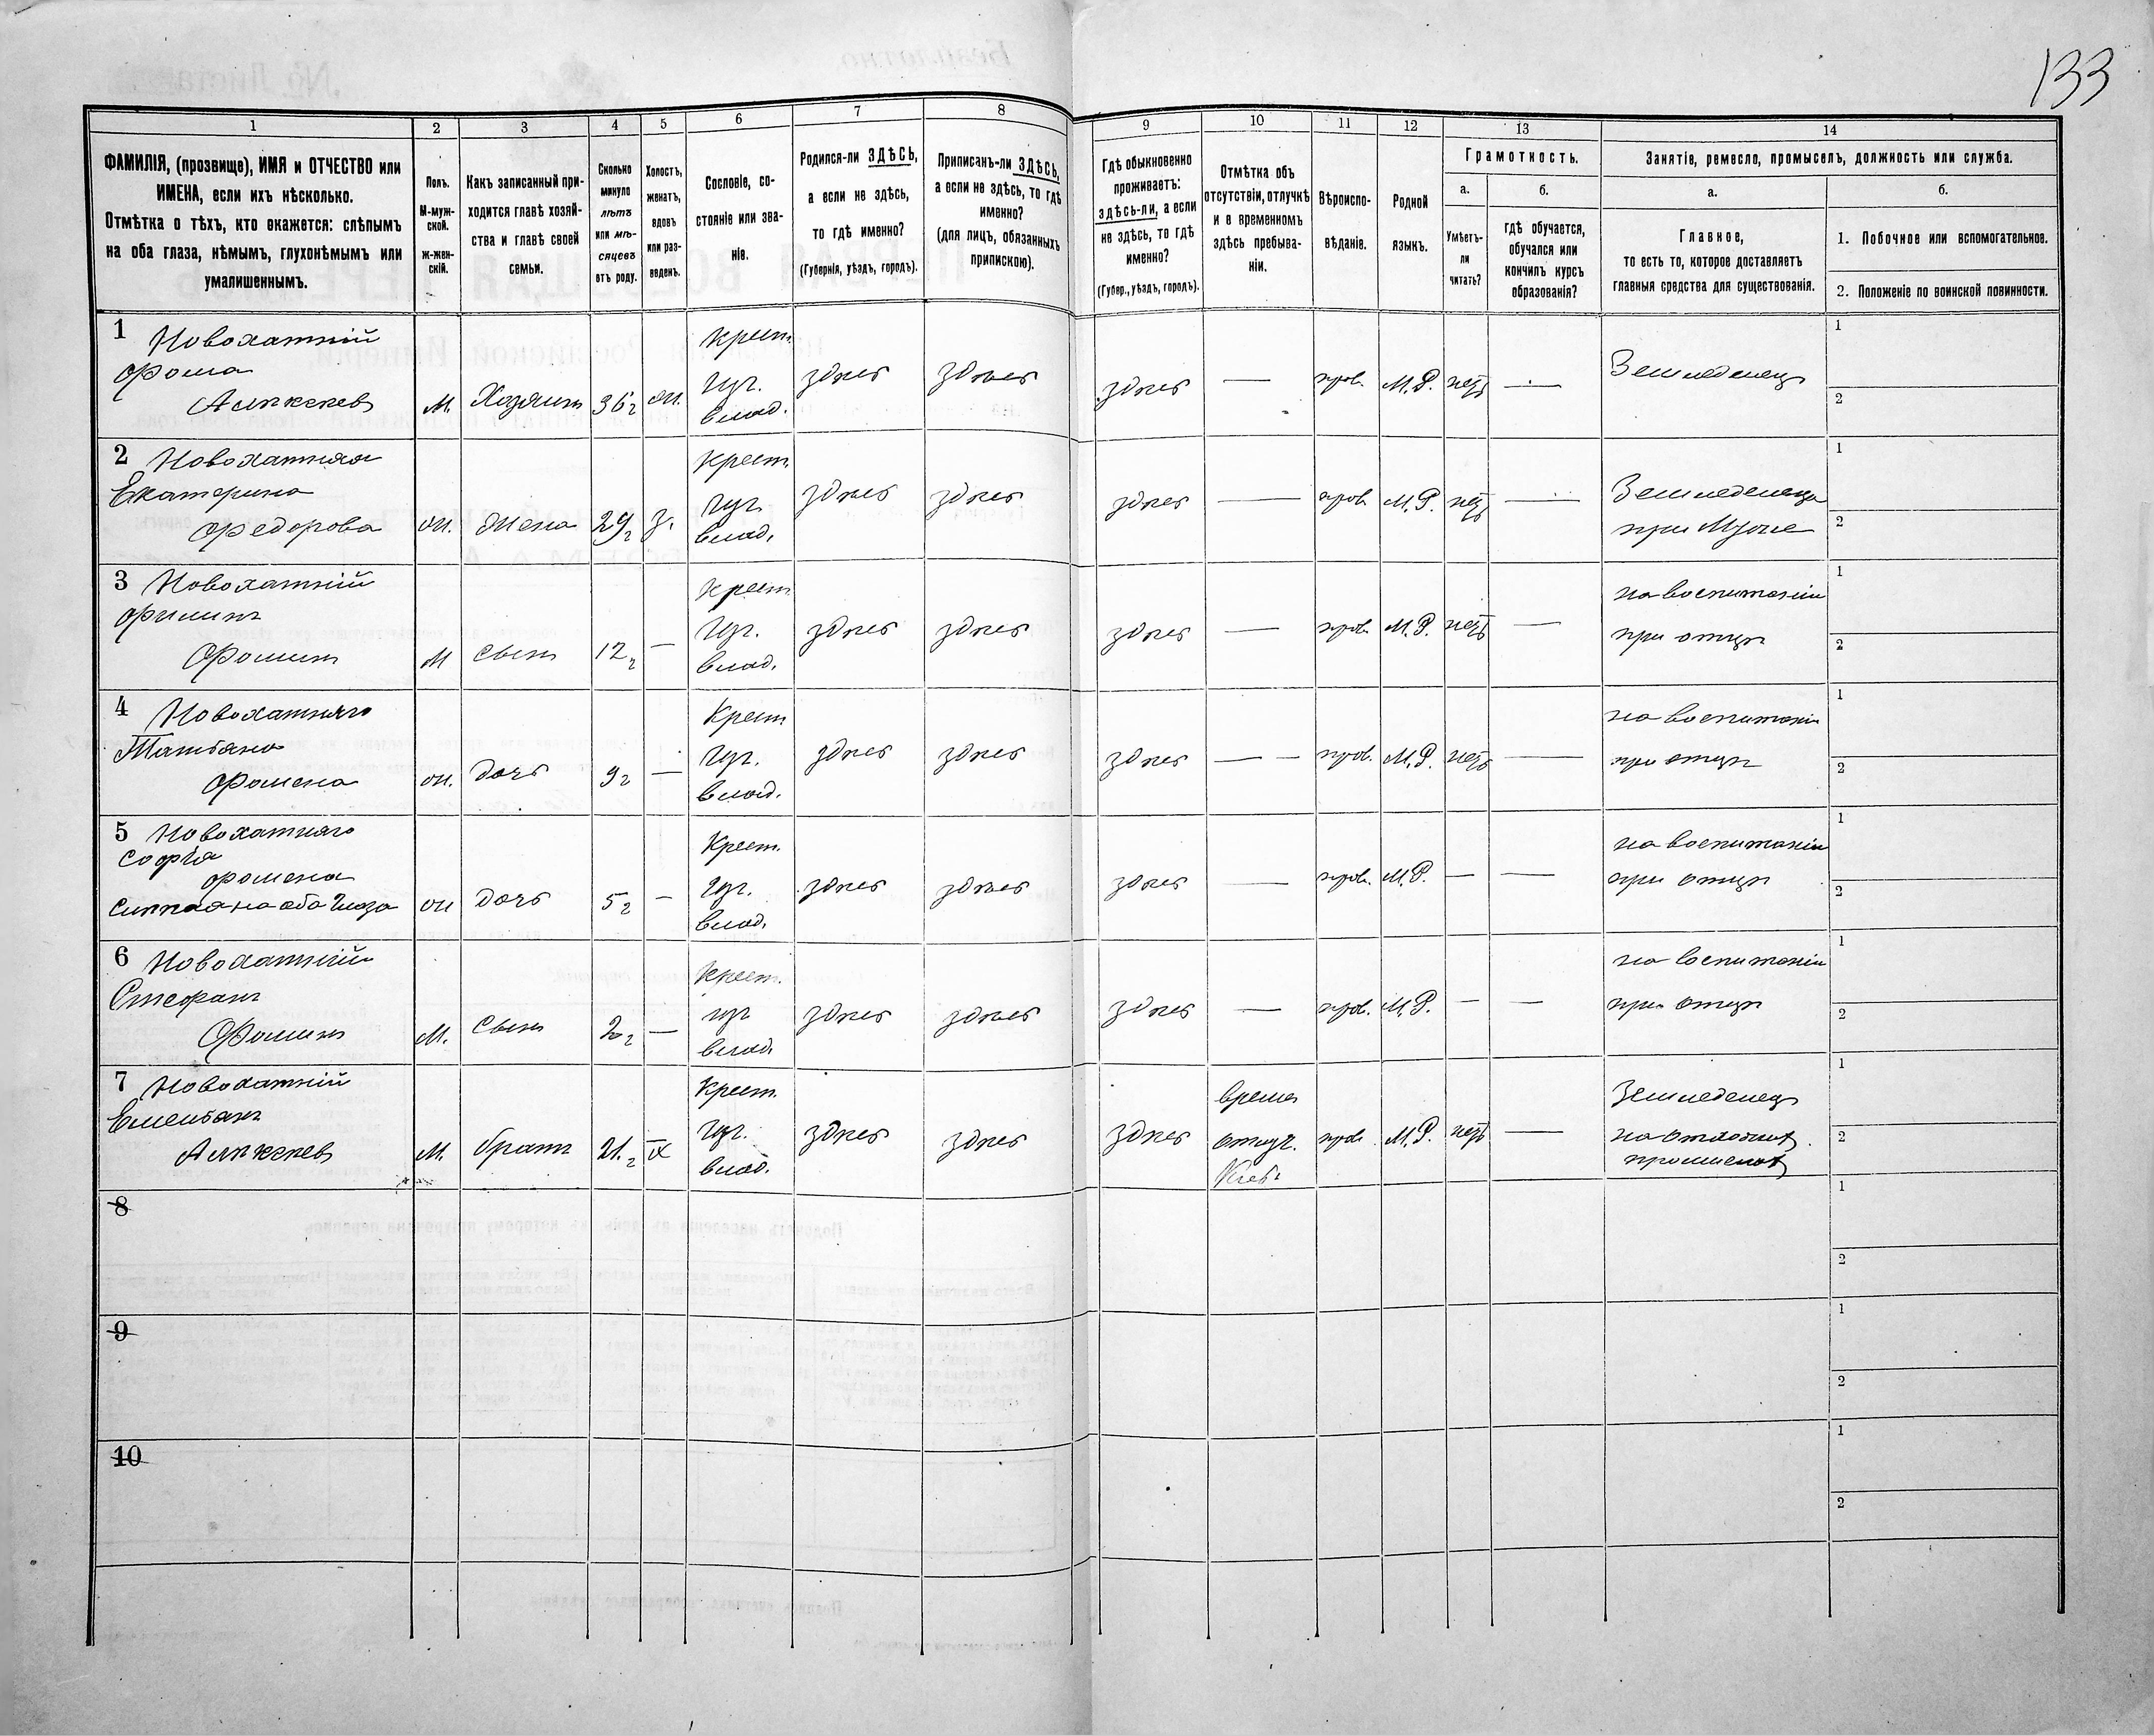 133
1
2
3
4
5
6
7
8
9
10
11
12
13
14
ФАМИЛІЯ, (прозвище), ИМЯ и ОТЧЕСТВО или
ИМЕНА, если ихъ нѣсколько.
Отмѣтка о тѣхъ, кто окажется: слѣпымъ
на оба глаза, нѣмымъ, глухонѣмымъ или
умалишеннымъ.
Полъ.
М-муж-
ской.
ж-жен-
скій.
Какъ записанный при-
ходится главѣ хозяй-
ства и главѣ своей
семьи.
Сколько
минуло
лѣтъ
или мѣ-
сяцевъ
отъ роду.
Холостъ,
женатъ,
вдовъ
или раз-
веденъ.
Сословіе, со-
стояніе или зва-
ніе.
Родился-ли ЗДѢСЬ,
а если не здѣсь,
то гдѣ именно?
(Губернія, уѣздъ, городъ).
Приписанъ-ли ЗДѢСЬ,
а если не здѣсь, то гдѣ
именно?
(для лицъ, обязанныхъ
припискою).
Гдѣ обыкновенно
проживаетъ:
здѣсь-ли, а если
не здѣсь, то гдѣ
именно?
(Губер., уѣздъ, городъ).
Отмѣтка объ
отсутствіи, отлучкѣ
и о временномъ
здѣсь пребыва-
ніи.
Вѣроиспо-
вѣданіе.
Родной
языкъ.
Грамотность.
а.
б.
Умѣетъ-
ли
читать?
гдѣ обучается,
обучался или
кончилъ курсъ
образованія?
Занятіе, ремесло, промыселъ, должность или служба.
а.
б.
Главное,
то есть то, которое доставляетъ
главныя средства для существованія.
1. Побочное или вспомогательное.
2. Положеніе по воинской повинности.
1 Новохатній
Фома
Алѣксѣевъ
М.
Хозяинъ
36 г
ж.
Крест.
влад.
здѣсь
здѣсь
здѣсь
—
прав.
М.Р.
нетъ
—
Земледелецъ
1
2
2 Новохатняя
Екатерина
Федорова
ж.
жена
29 г
з.
крест.
влад.
здѣсь
здѣсь
здѣсь
—
прав.
М.Р.
нетъ
—
Земледелица
при Мужѣ
1
2
3 Новохатній
Филипъ
Фоминъ
М
сынъ
12 г
—
Крест
влад.
здѣсь
здѣсь
здѣсь
—
прав.
М.Р.
нетъ
—
на воспитаніи
при отцѣ
1
2
4 Новохатняго
Татьяна
Фомена
ж.
дочь
9 г
—
Крест
влад.
здѣсь
здѣсь
здѣсь
— —
прав.
М.Р.
нетъ
—
на воспитаніи
при отцѣ
1
2
5 Новохатняго
Софія
Фомена
Слѣпая на оба Глаза
ж
дочь
5 г
—
Крест.
влад.
здѣсь
здѣсь
здѣсь
—
прав.
М.Р.
—
—
на воспитаніи
при отцѣ
1
2
6 Новохатній
Стефанъ
Фоминъ
М.
Сынъ
2 г
—
Крест.
влад.
здѣсь
здѣсь
здѣсь
—
прав.
М.Р.
—
—
на воспитаніи
при отцѣ
1
2
7 Новохатній
Емельянъ
Алѣксѣевъ
М.
братъ
21. г
Крест.
влад.
здѣсь
здѣсь
здѣсь
времен
отлуч.
прав.
М.Р.
нетъ
—
Земледелецъ
на отхожихъ
1
2
8
1
2
9
1
2
10
1
2